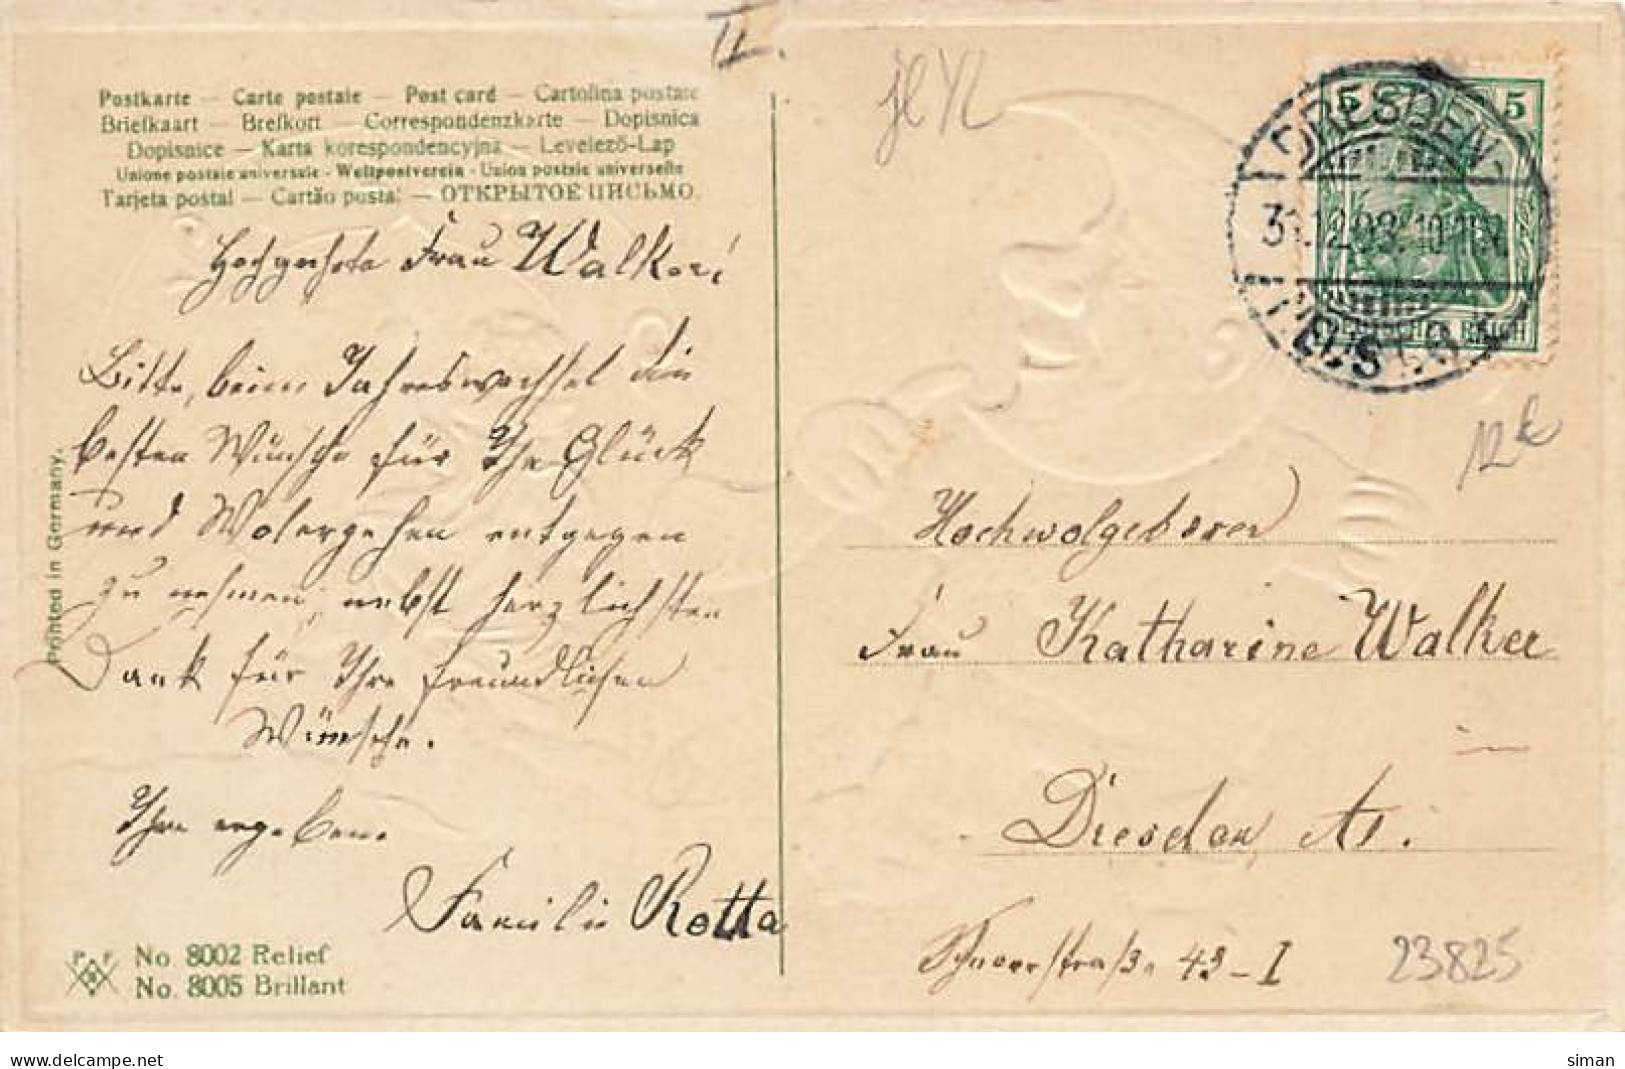 II.
Postkarte — Carte postale — Post card — Cartolina postale
Briefkaart — Brefkort — Correspondenzkarte — Dopisnica
Dopisnice — Karta korespondencyjna — Levelező-Lap
Unione postale universale - Weltpostverein - Union postale universelle
Tarjeta postal — Cartão postal — ОТКРЫТОЕ ПИСЬМО.
Hochgeehrte Frau Walker!
Bitte, beim Jahreswechsel die
besten Wünsche für Ihr Glück
und Wolergehen entgegen
zu nehmen, nebst herzlichsten
Dank für Ihre freundlichen
Wünsche.
Ihre ergeben.
Familie Rotta
Printed in Germany.
P F B
No. 8002 Relief
No. 8005 Brillant
5 5
DEUTSCHES REICH
DRESDEN
31.12.
NEUST.
12k
Hochwolgeboren
Frau Katharine Walker
in
Dresden At.
43-I
23825
www.delcampe.net
siman